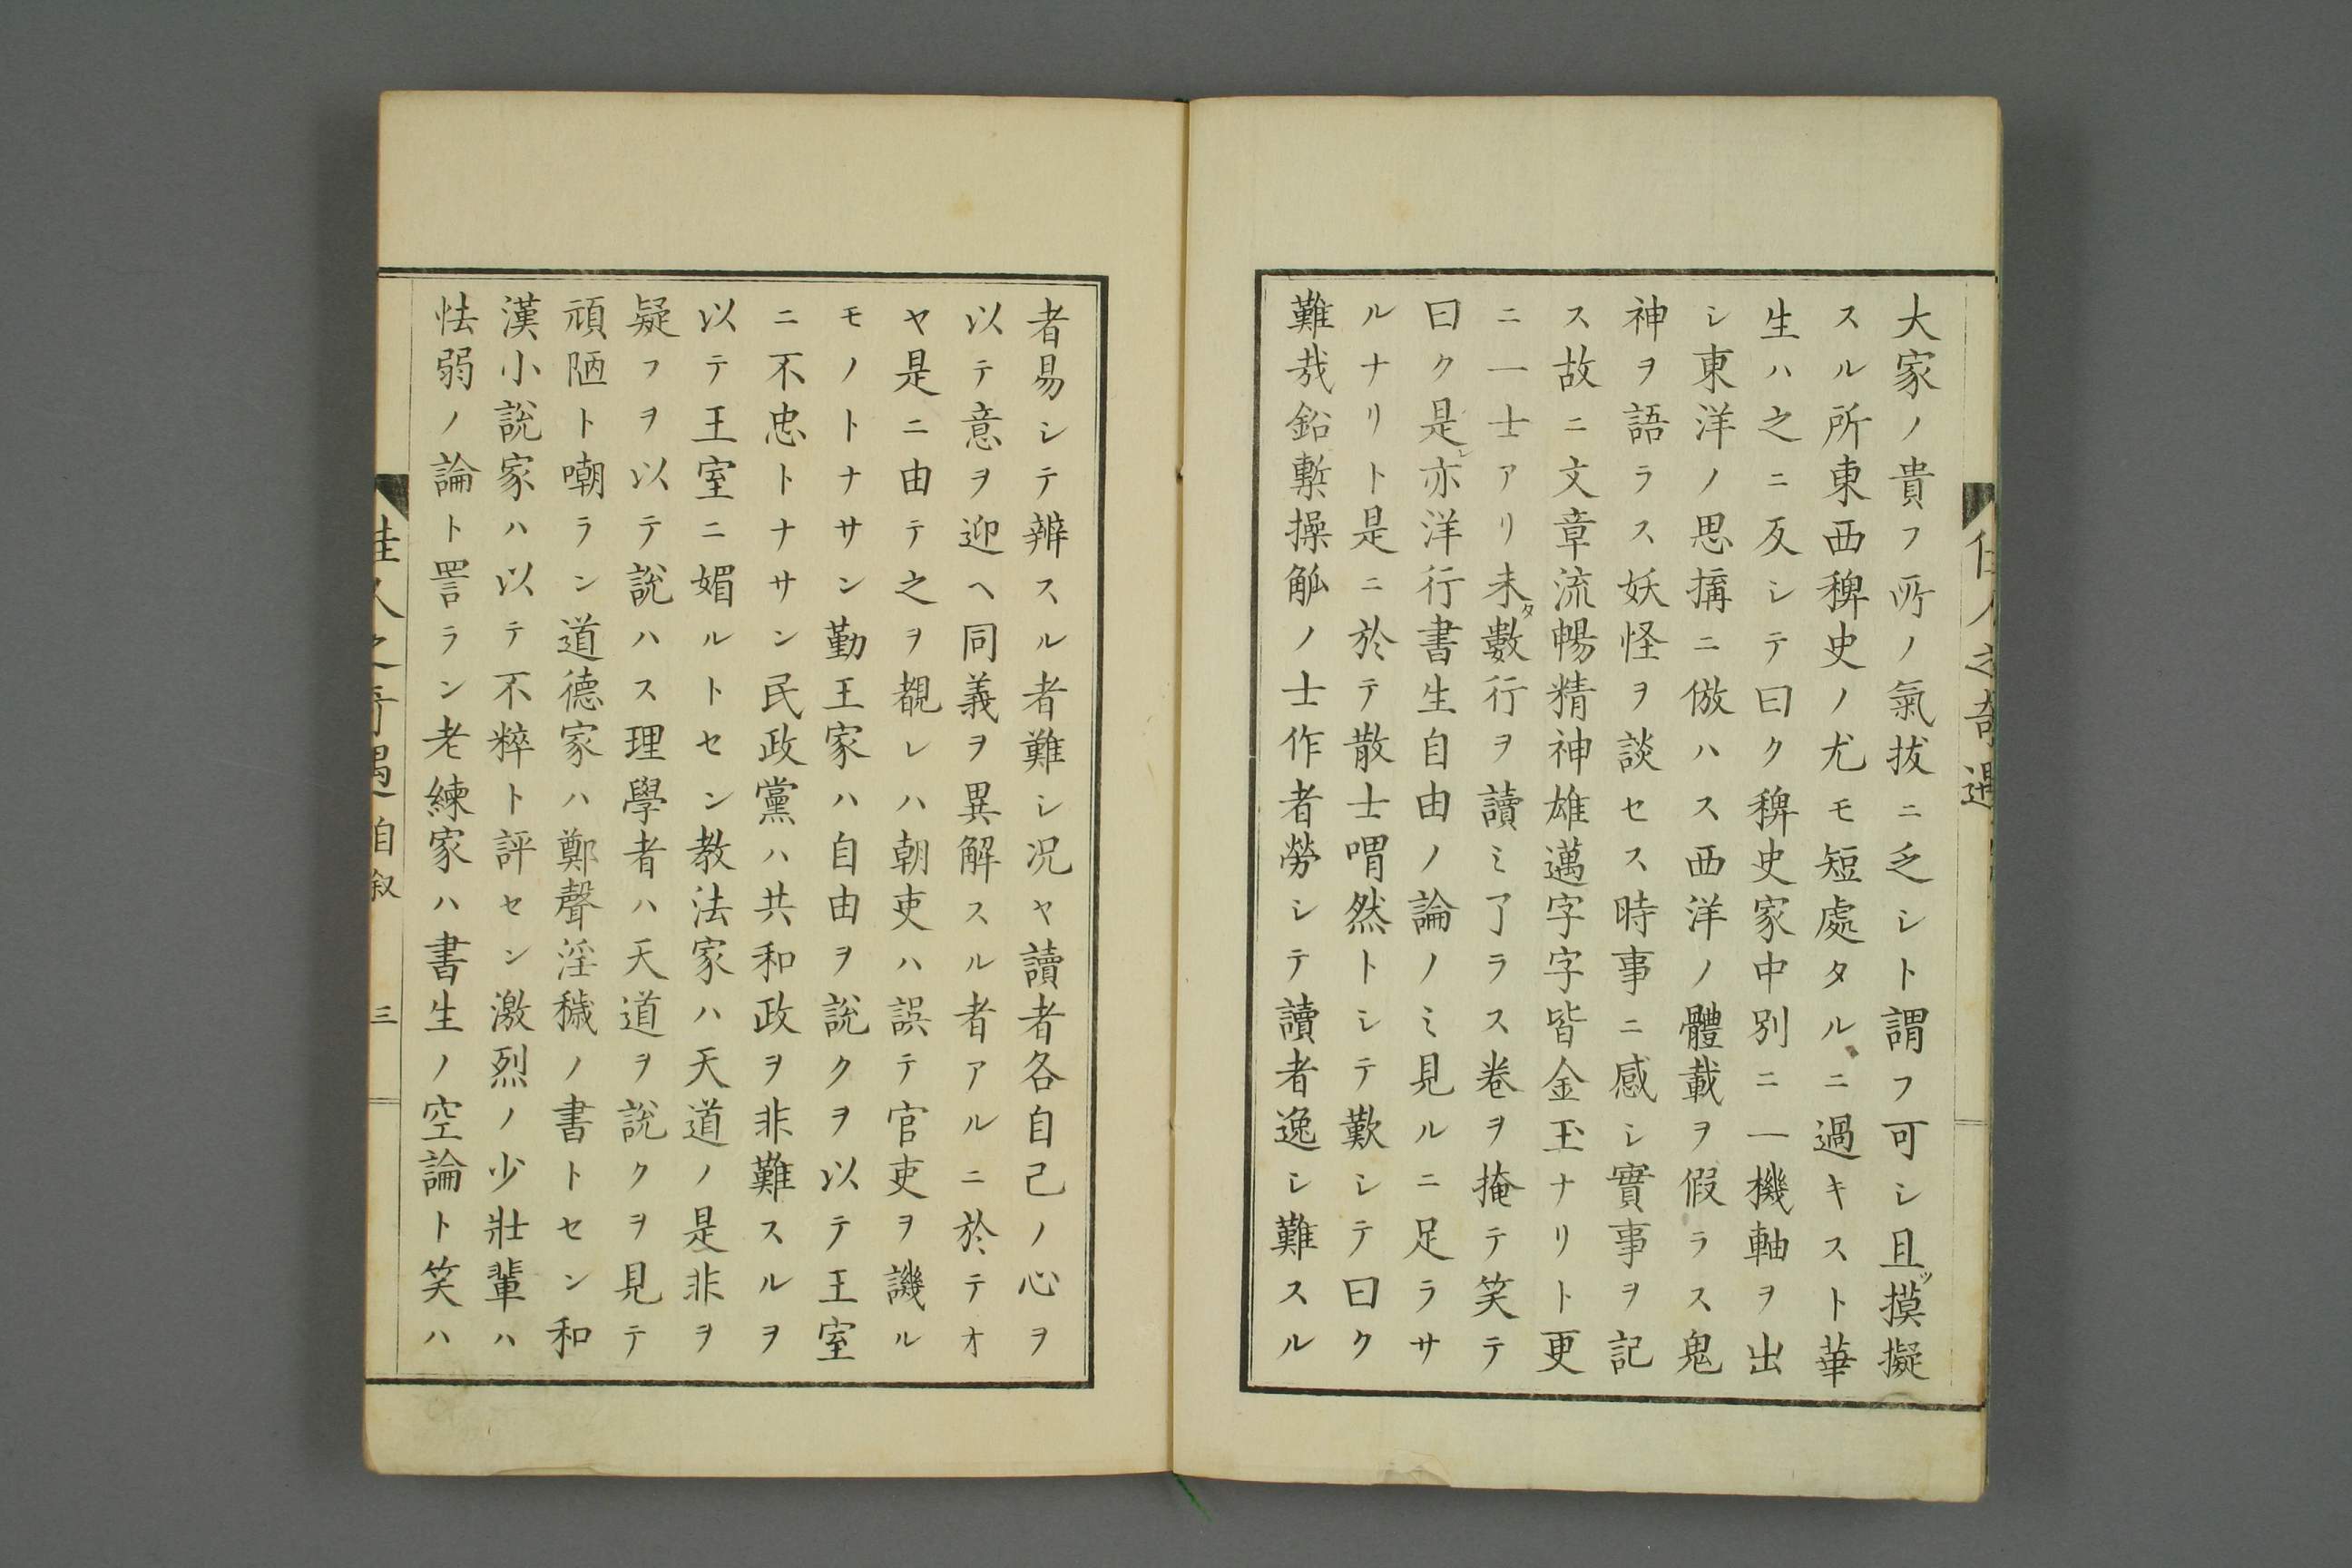 大家ノ貴フ所ノ氣拔ニ乏シト謂フ可シ且ツ摸擬
スル所東西稗史ノ尤モ短處タルニ過キスト華
生ハ之ニ反シテ曰ク稗史家中別ニ一機軸ヲ出
シ東洋ノ思搆ニ倣ハス西洋ノ體載ヲ假ラス鬼
神ヲ語ラス妖怪ヲ談セス時事ニ感シ實事ヲ記
ス故ニ文章流暢精神雄邁字字皆金玉ナリト更
ニ一士アリ未タ數行ヲ讀ミ了ラス卷ヲ掩テ笑テ
曰ク是レ亦洋行書生自由ノ論ノミ見ルニ足ラサ
ルナリト是ニ於テ散士喟然トシテ歎シテ曰ク
難哉鉛槧操觚ノ士作者勞シテ讀者逸シ難スル
者易シテ辨スル者難シ况ヤ讀者各自己ノ心ヲ
以テ意ヲ迎ヘ同義ヲ異解スル者アルニ於テオ
ヤ是ニ由テ之ヲ覩レハ朝吏ハ誤テ官吏ヲ譏ル
モノトナサン勤王家ハ自由ヲ說クヲ以テ王室
ニ不忠トナサン民政黨ハ共和政ヲ非難スルヲ
以テ王室ニ媚ルトセン教法家ハ天道ノ是非ヲ
疑フヲ以テ說ハス理學者ハ天道ヲ說クヲ見テ
頑陋ト嘲ラン道德家ハ鄭聲淫穢ノ書トセン和
漢小說家ハ以テ不粹ト評セン激烈ノ少壯輩ハ
怯弱ノ論ト詈ラン老練家ハ書生ノ空論ト笑ハ
佳人之奇遇自叙 三